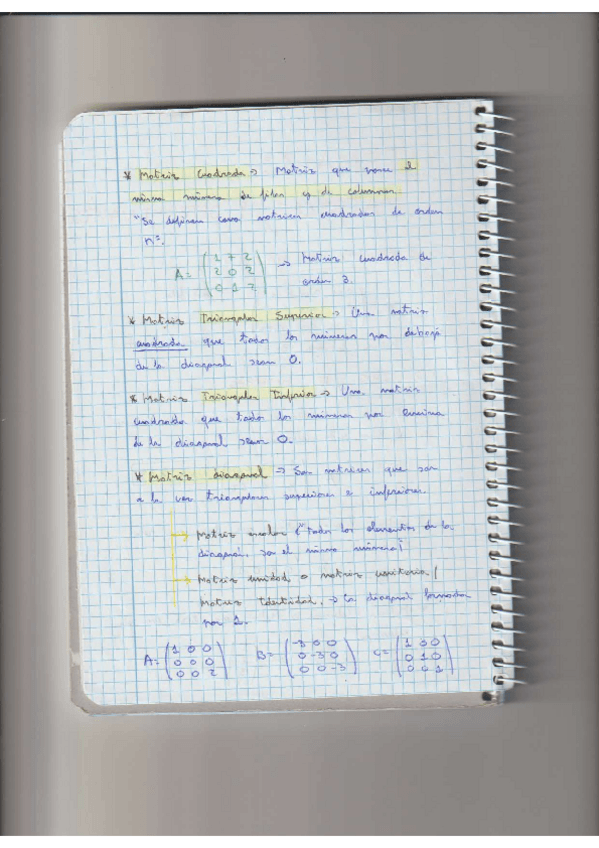 * Matriz Cuadrada → Matriz que posee el
mismo número de filas y de columnas.
"Se definen como matrices cuadradas de orden
nº.
A = ( 1 7 2 → Matriz cuadrada de
2 0 2 orden 3.
0 1 7 )
* Matriz Triangular Superior → Una matriz
cuadrada que todos los números por debajo
de la diagonal sean 0.
* Matriz Triangular Inferior → Una matriz
cuadrada que todos los números por encima
de la diagonal sean 0.
* Matriz diagonal → Son matrices que son
a la vez triangulares superiores e inferiores.
→ Matriz escalar ("todos los elementos de la
diagonal, son el mismo número)
→ Matriz unidad o matriz unitaria /
Matriz Identidad. → La diagonal formada
por 1.
A = ( 1 0 0 B = ( -3 0 0 C = ( 1 0 0
0 0 0 0 -3 0 0 1 0
0 0 2 ) 0 0 -3 ) 0 0 1 )